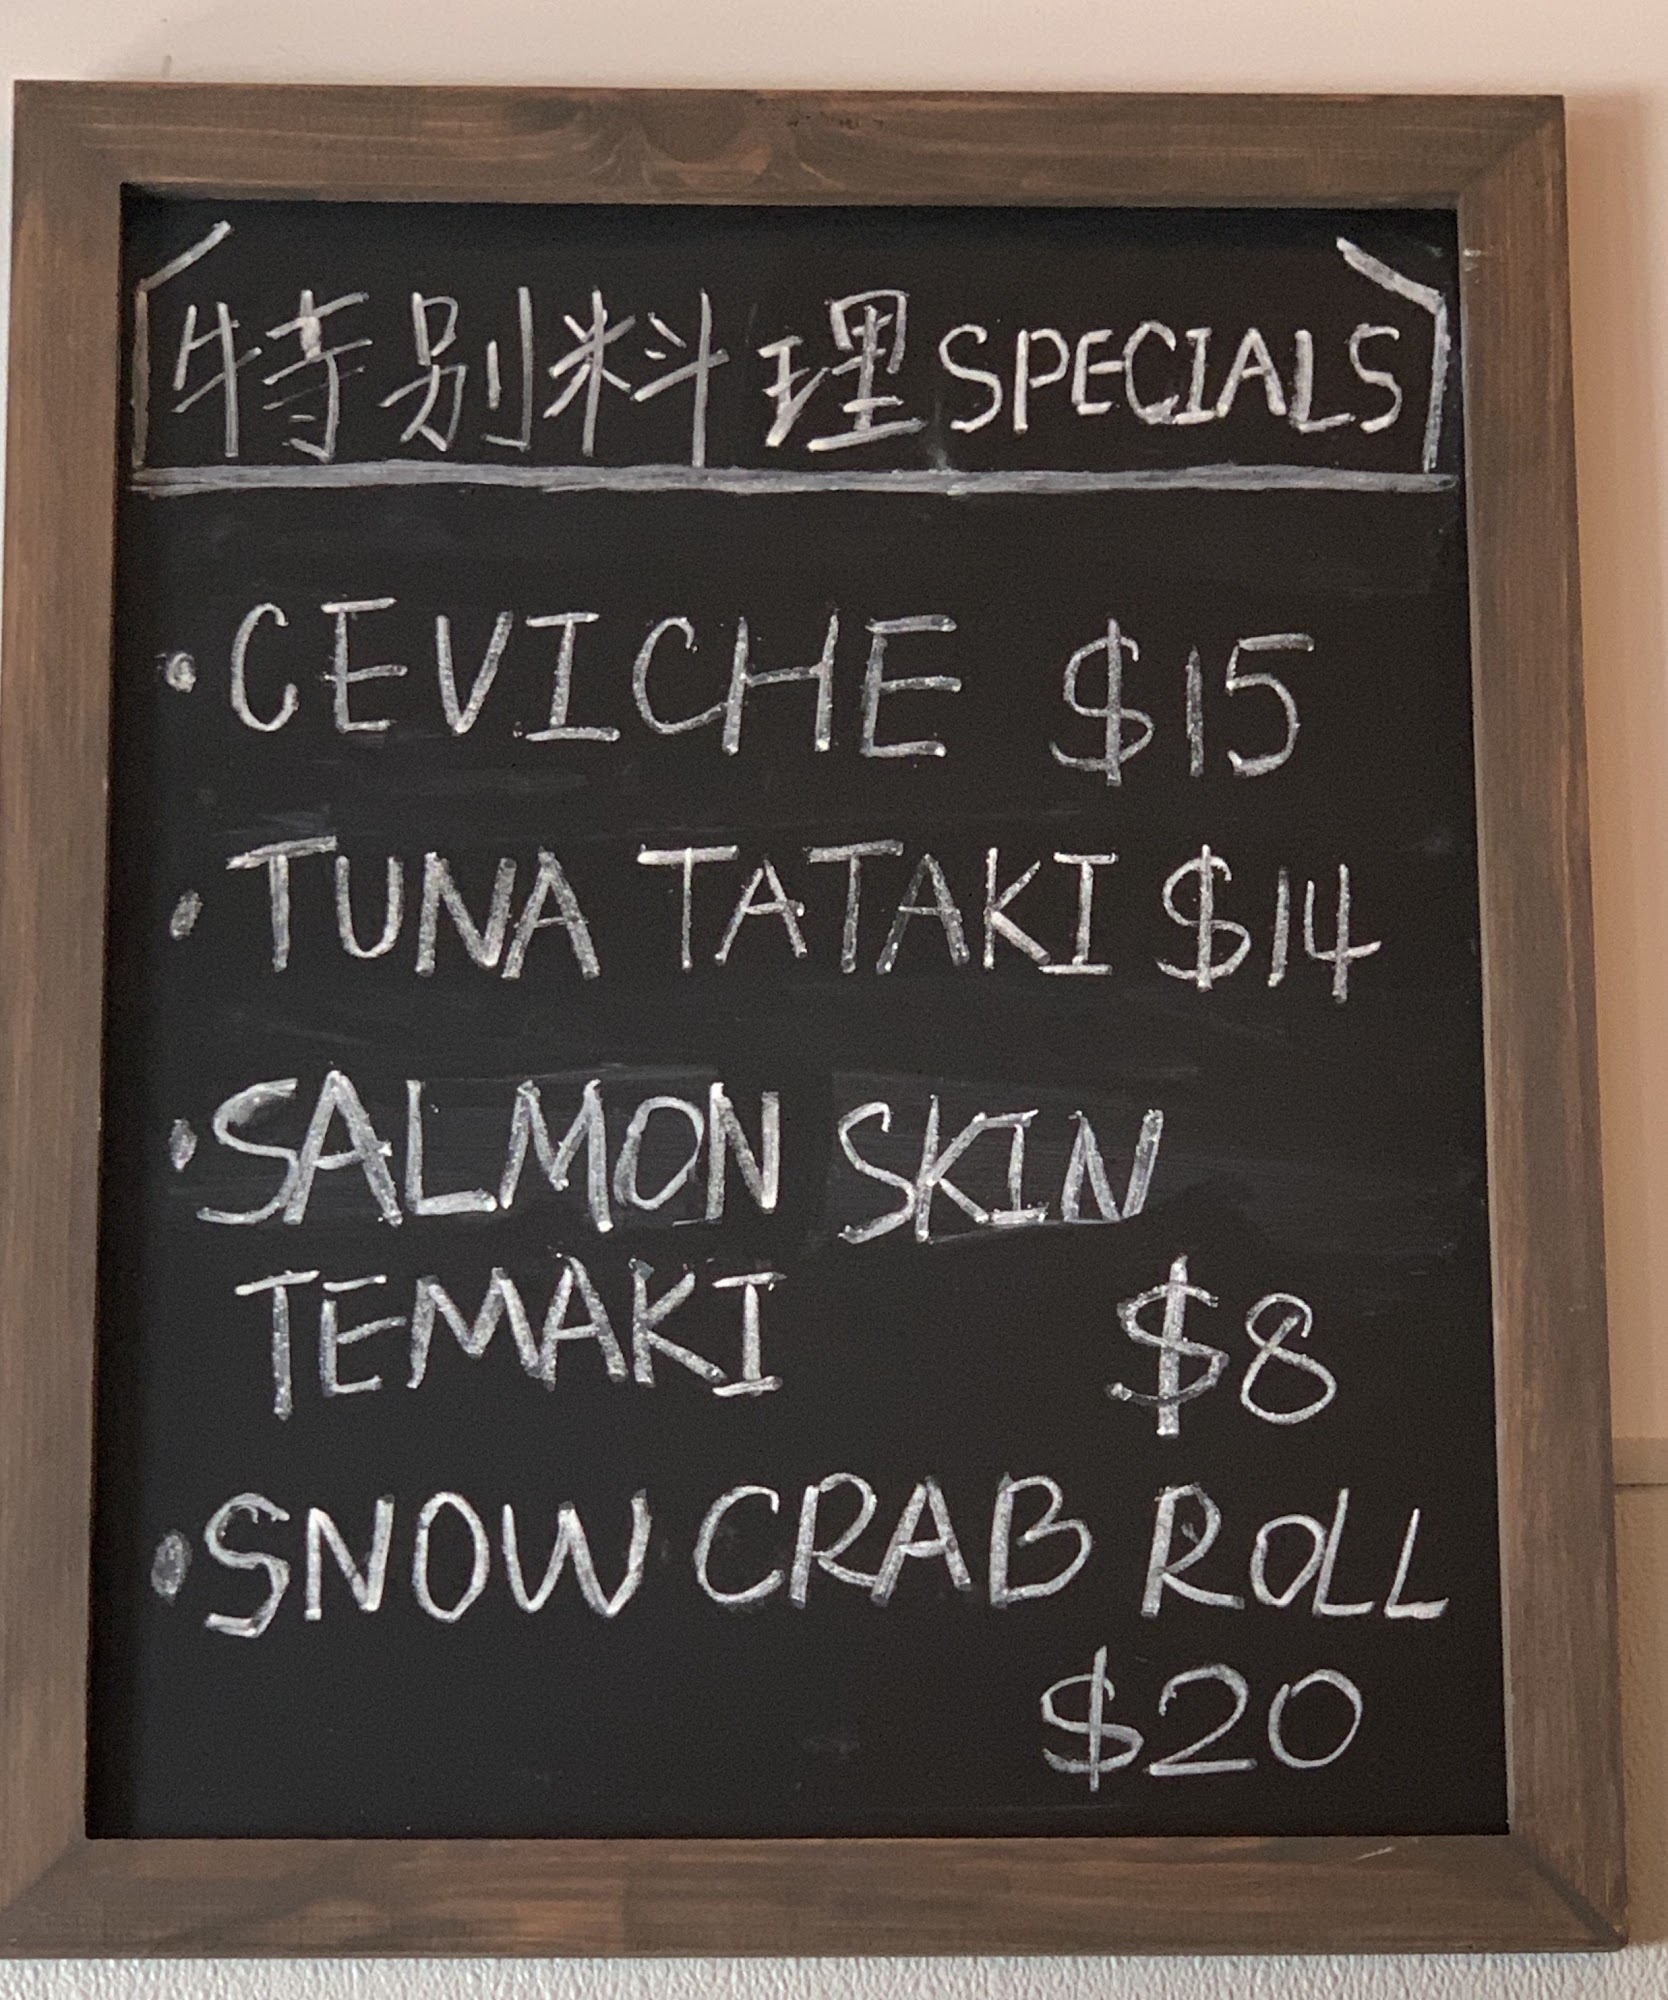 特別料理 SPECIALS
• CEVICHE $15
• TUNA TATAKI $14
• SALMON SKIN
TEMAKI $8
• SNOW CRAB ROLL
$20